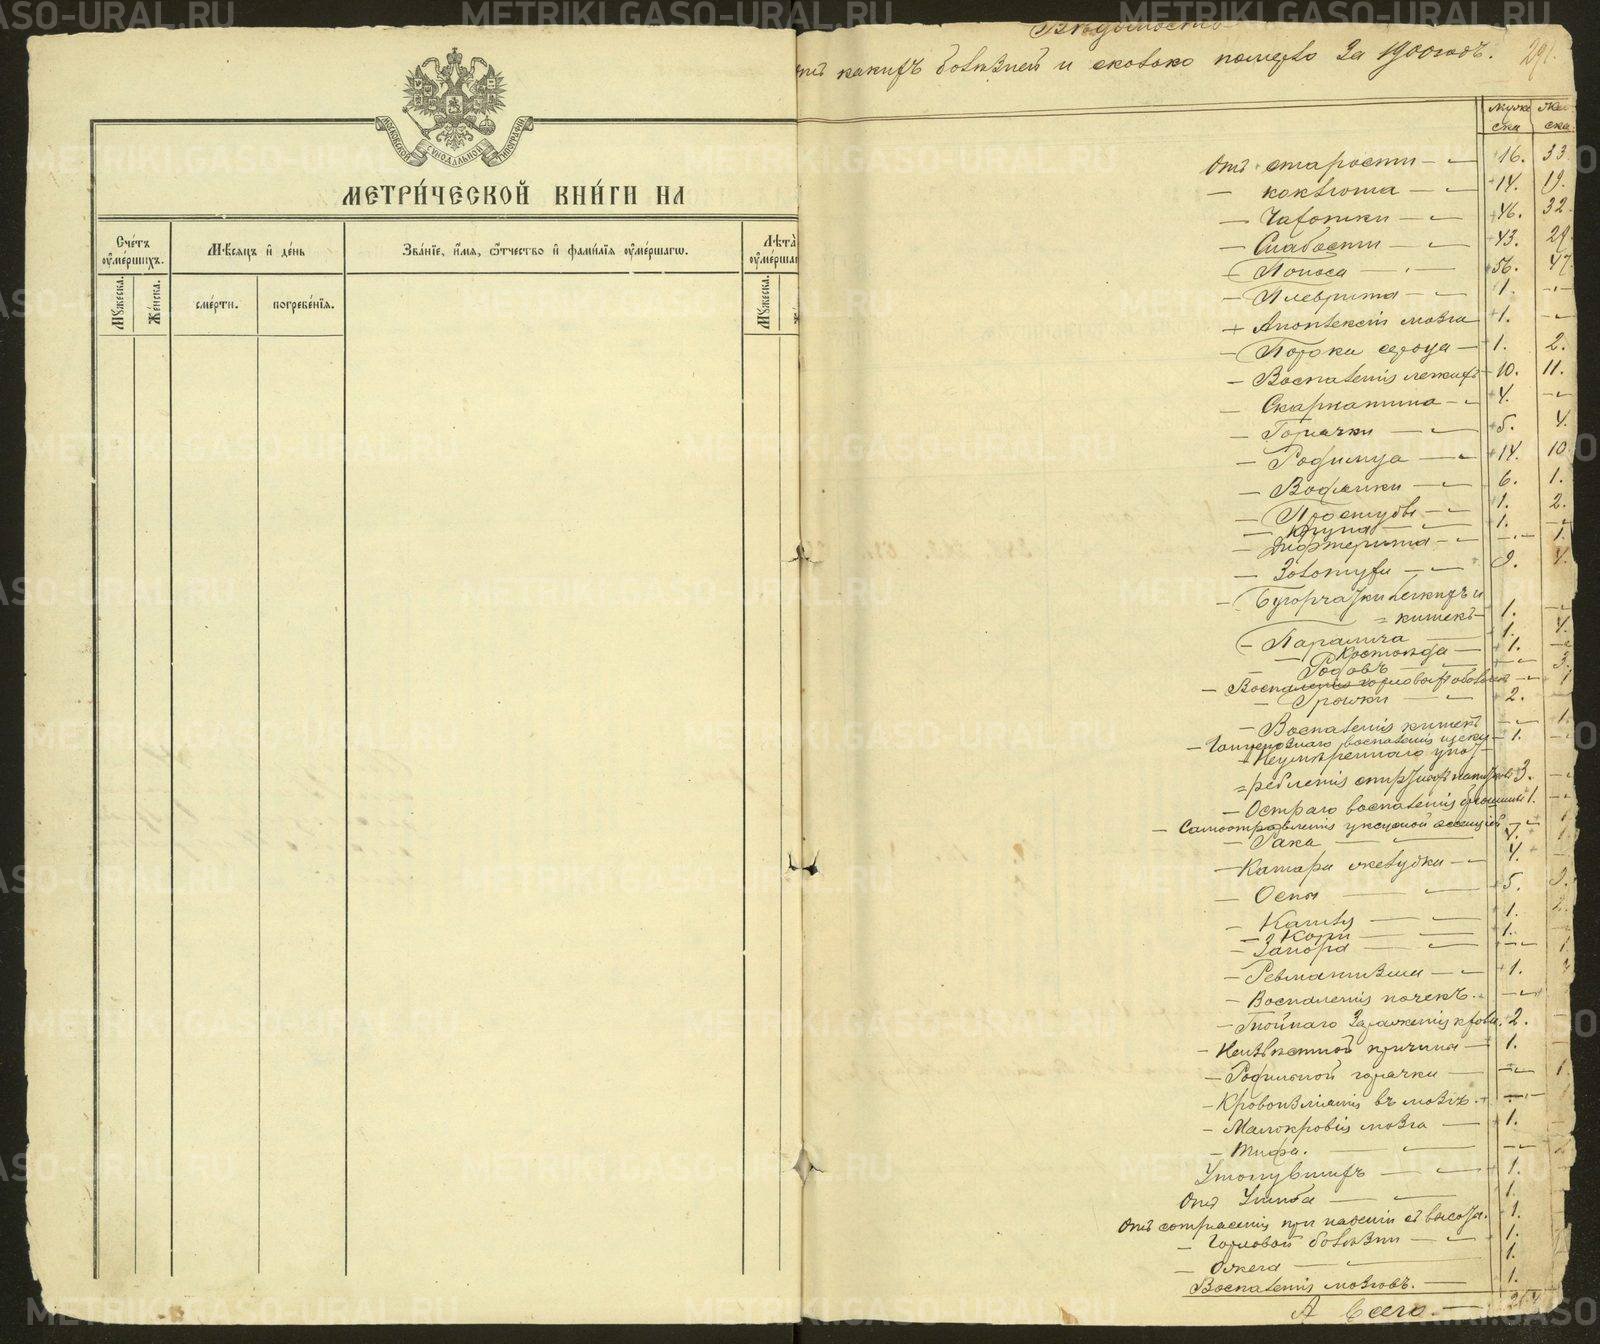 МОСКОВСКОЙ СУНОДАЛЬНОЙ ТИПОГРАФІИ
МЕТРИ́ЧЕСКОЙ КНИ́ГИ НА
Сче́тъ ᲂу҆ме́ршихъ.
Мѣ́сяцъ и҆ де́нь
Зва́нїе, и҆́мя, ѻ҆́тчество и҆ фами́лїя ᲂу҆ме́ршагѡ.
Лѣта̀
Мꙋ́жеска.
Же́нска.
сме́рти.
погребе́нїя.
Мꙋ́жеска.
Вѣдомость
отъ какихъ болѣзней и сколько померло За 1900 годъ. 291.
муже ска
жен ска.
Отъ старости — 16. 33.
— коклюша — 14. 19.
— Чахотки — 46. 32.
— Слабости — 43. 29.
— Поноса — 56. 47.
— Плеврита — 1. —
+ Апоплексіи мозга 1. —
— Порока сердца — 1. 2.
— Воспаленія легкихъ 10. 11.
— Скарлатина — 4. —
— Горячки — 5. 4.
— Родимца — 14. 10.
— Водянки — 6. 1.
— Простуды — 1. 2.
— Крупа — 1. —
— Дифтерита — — 1.
— Золотухи — 9. 4.
— Бугорчатки легкихъ и
= кишекъ — 1. —
— Паралича — 1. 4.
— Костоѣда — 1. —
— Родовъ — — 3.
— Воспаленія — 1
— Грыжи — 2. —
— Воспаленія кишекъ — 1.
— воспаленія щеки — 1. —
+ Неумѣреннаго упот-
= ребленія спиртныхъ напитковъ 3. —
— Остраго воспаленія брюшины 1. —
— Самоотравленія уксусной эссенціей —
— Рака —
— Катара желудка — 4. —
— Оспы — 5.
— Кашля — 1.
— Кори — 1.
— Запора — — 1
— Ревматизма — 1.
— Воспаленія почекъ. —
— Гнойнаго Зараженія крови. 2. —
— Неизвѣстной причины — 1. —
— Родильной горячки — — 1.
— Кровоизліянія въ мозгъ. —
— Малокровія мозга — 1.
— Тифа. —
Утонувшихъ — 1.
Отъ Ушиба — 1.
Отъ сотрясенія при паденіи съ высоты. 1.
— Горловой болѣзни — 1.
— Ожега — 1.
Воспаленія мозговъ. — 1.
А Всего. —
METRIKI.GASO-URAL.RU